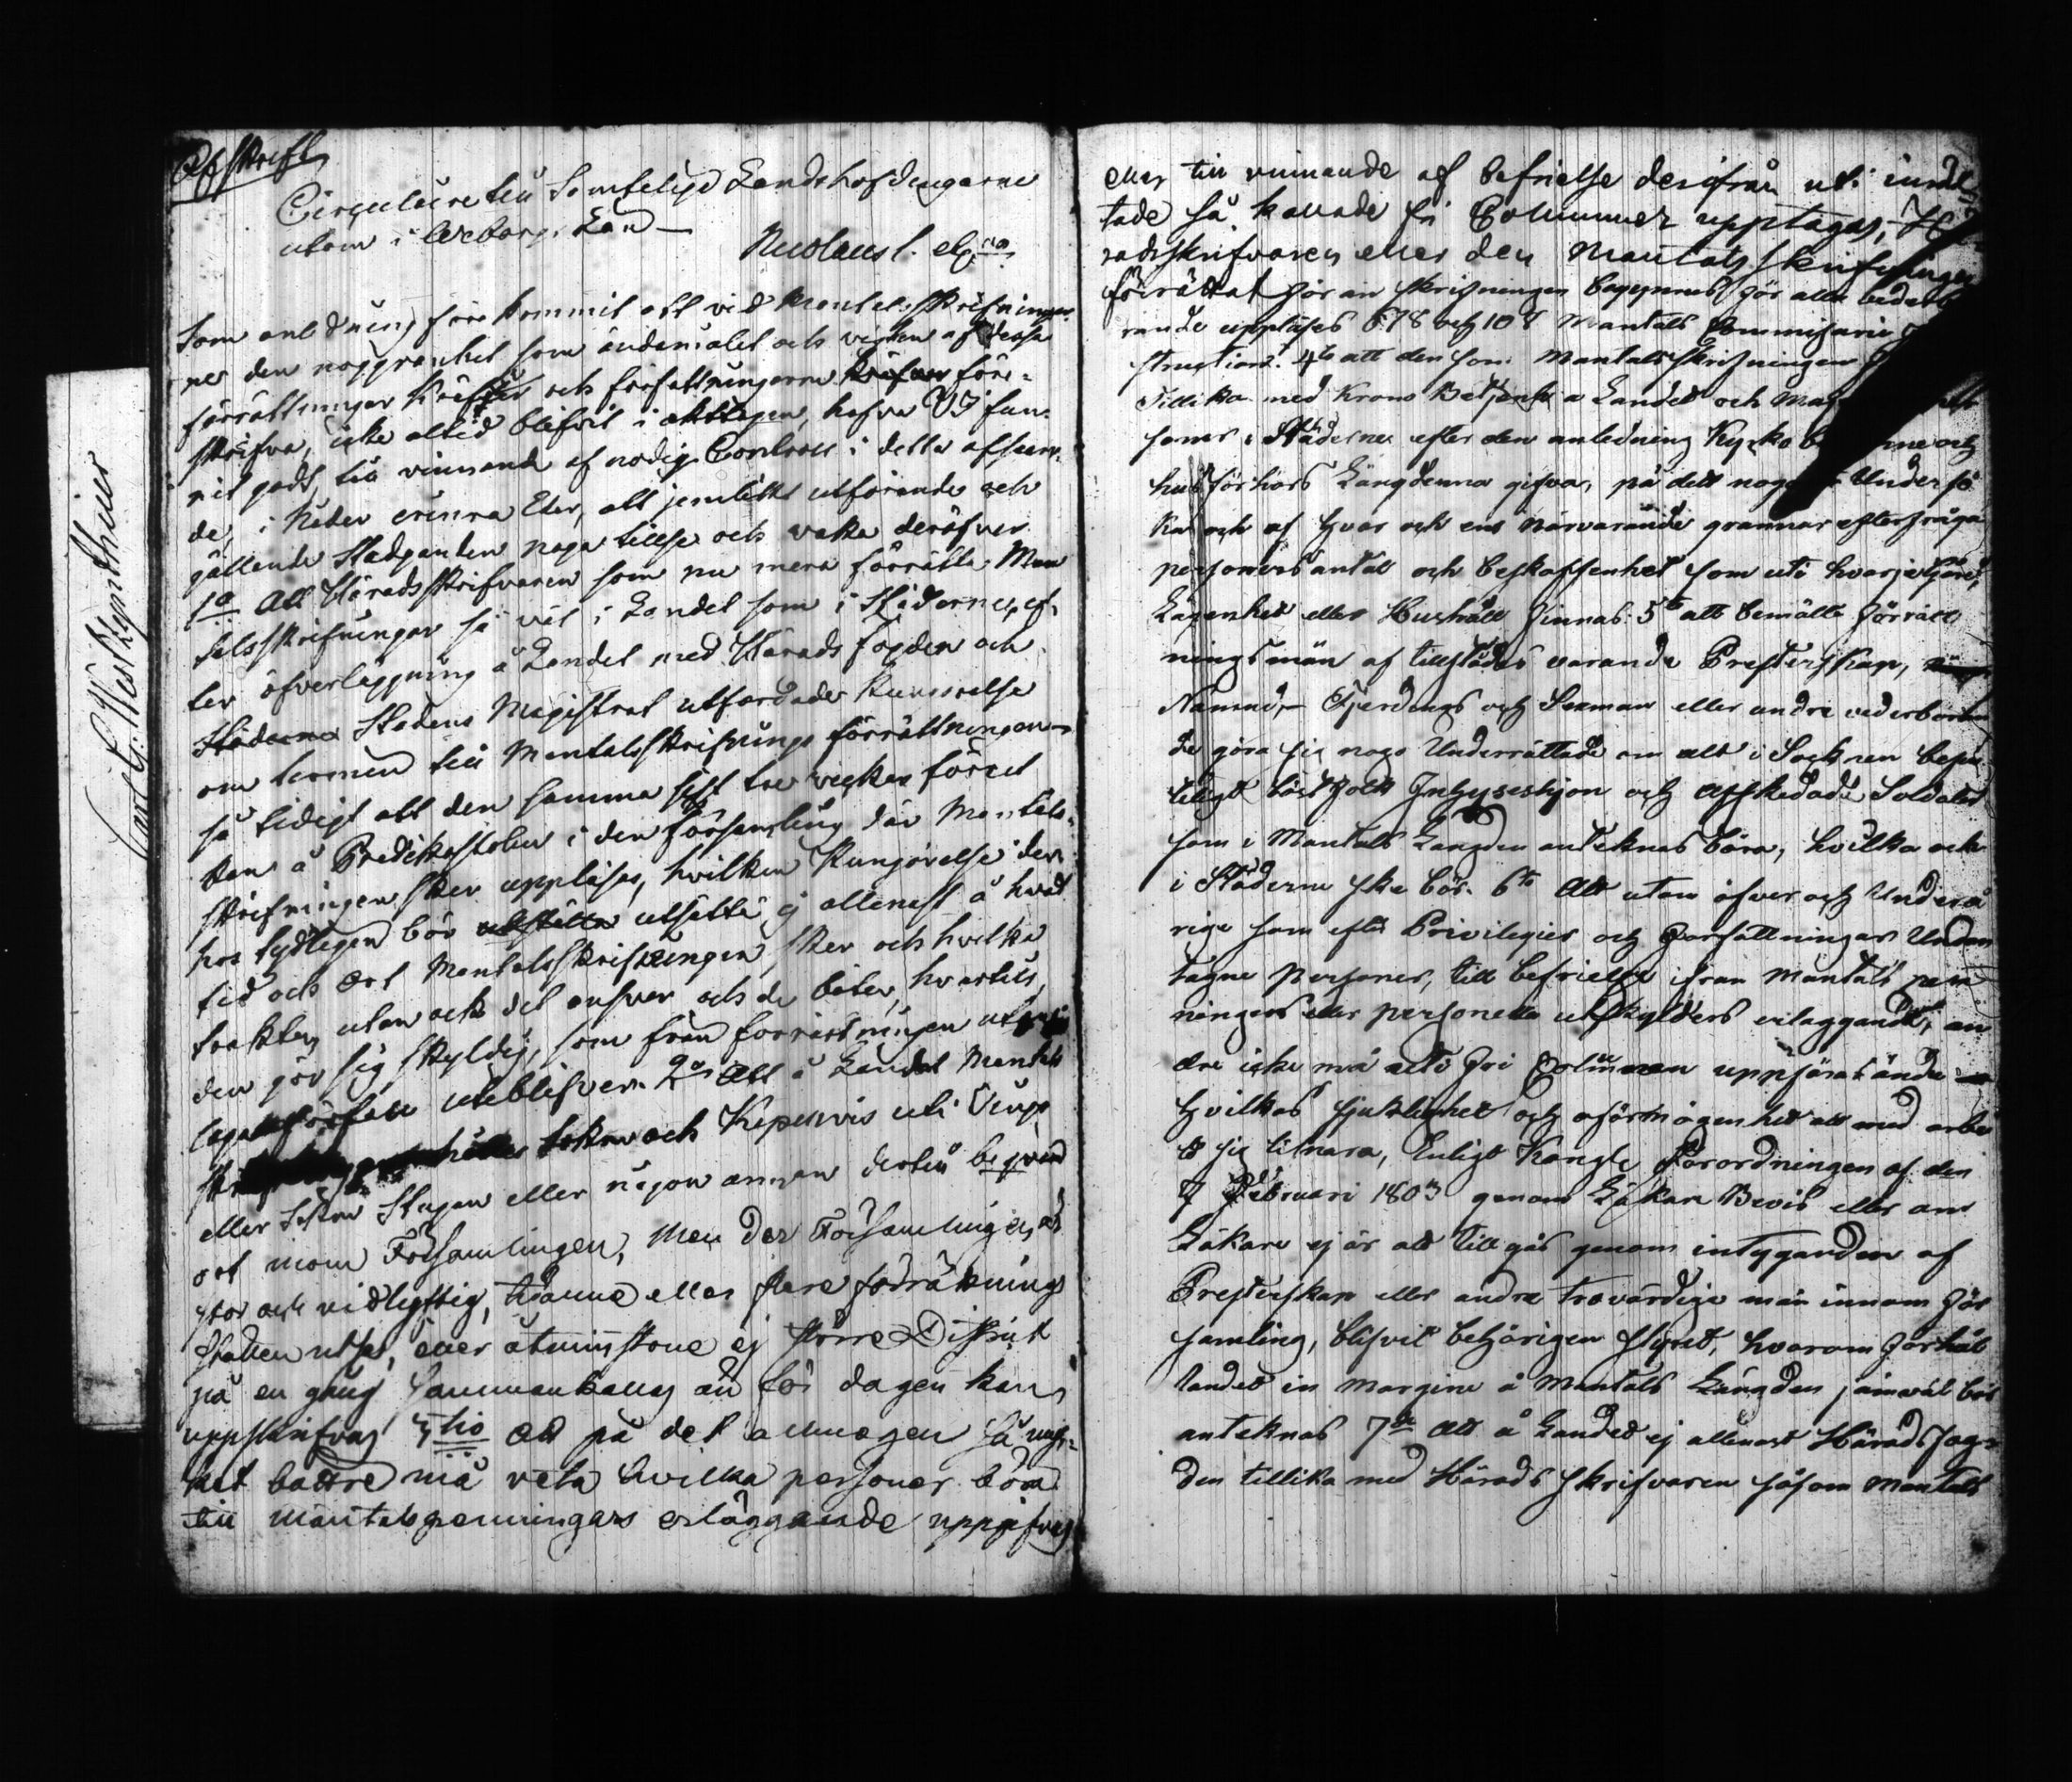 Afskrift
Circulaire till Samtelige Landshöfdingarne
utom i Wiborgs Län
Nicolaus I. etc.
Som anledning före kommit att vid Mantalsskrifningar
nes den noggranhet som ändamålet och vigten af dessa
förrättningar kräfver och författningarne före-
skrifva, icke altid blifvit i akttagen, hafva Vi fun-
nit godt till vinnande af nödig Controll i detta afseen-
de, i Nåder erinra Eder, att jemlikt utförande och
gällande Stadganden noga tillse och vaka deröfver
1o Att Häradsskrifvaren som nu mera förrätta Man
talsskrifningar så väl i Landet som i Städerne, ef-
ter öfverläggning å Landet med Härads fogden och
Städerna Stadens Magistrat utfärdade Kungörelse
om termen till Mantalsskrifnings förrättningen
så tidigt att den samma sist tre veckor förut
kan å Predikostolen i den Församling där Mantals-
skrifningen sker uppläsas, hvilken Kungörelse der
hos tydligen bör utsätta ej allenast å hvad
tid och ort Mantalsskrifningen sker och hvilka
trakter, utan ock det ansvar och de böter, hvartill
den gör sig skyldig, som från förrättningen utan
laga förfall uteblifver. 2o Att å Landet Mantals
hålles Sokne och Kapellvis uti
eller Sokne Stugan eller någon annan dertill beqväm
ort inom Församlingen, Men der Församlingen är
stor och vidlyftig, tvänne eller flere förrättnings
ställen utses, eller åtminstone ej större District
på en gång sammankallas än för dagen kan
uppskrifvas 3tio Att på det allmogen så myc-
ket bättre må veta hvilka personer böra
till mantalspenningars erläggande uppgifvas
eller till vinnande af befrielse derifrån uti
tade så kallade fri Columner upptagas,
radsskrifvaren eller den Mantals skrifningen
förrättat för än skrifningen begynnes för alla
rande uppläses 6 7 8 och 10 § Mantals Commissarie
struction. 4to att den som Mantalsskrifningen
Tillika med Krono Betjente a Landet och
i Städerne efter den anledning Kyrko
husförhörs Längderna gifva, på det noga Undersö
ka och af hvar och ens närvarande grannar efterfråga
personers antal och beskaffenhet som uti hvarje Gård,
Lägenhet eller Hushåll finnas. 5to att bemälte förrätt
ningsmän af tillstädes varande Presterskap,
Nämnd, Fjerdings och Sexman eller andre vederböran
de göra sig noga Underrättade om allt i Socknen befin
teligt löst folk Inhyseshjon och Afskedade Soldater
som i Mantals Längden anteknas böra, hvilka ock
i Städerne ske bör. 6to Att utom öfver och Underå
rige som efter Privilegier och Författningar Undan
tagne personer, till befrielse ifrån Mantals pen
ningars eller personella utskylders erläggande, an
dre icke må uti fri Columnen uppföras än de
hvilkas sjuklighet och oförmögenhet att med arbe
te sig tilnära, Enligt Kongle Förordningen af den
7 Februari 1803 genom Läkare Bevis eller om
Läkare ej är att tillgås genom intyganden af
Presterskap eller andra trovärdige män innom För
samling, blifvit behörigen styrkt, hvarom förhål
landet in margine å Mantals Längden jämväl bör
anteknas 7de Att å Landet ej allenast Häradsfog-
den tillika med Härads skrifvaren såsom Mantals